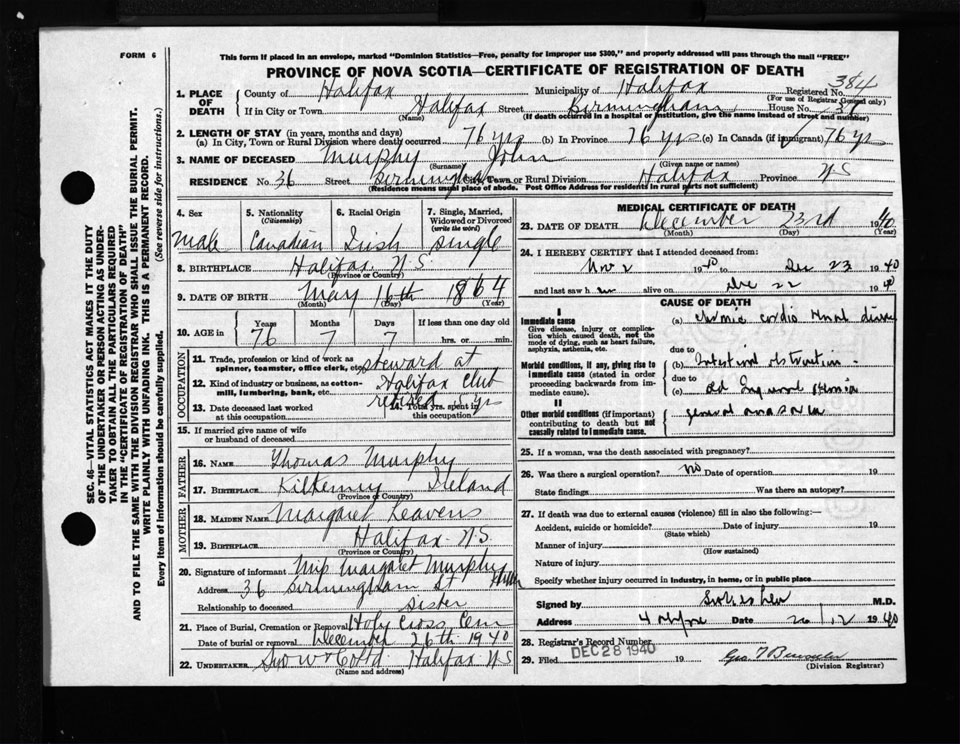 FORM 6
This form if placed in an envelope, marked "Dominion Statistics—Free, penalty for improper use $300," and properly addressed will pass through the mail "FREE"
PROVINCE OF NOVA SCOTIA—CERTIFICATE OF REGISTRATION OF DEATH
384
1. PLACE OF DEATH County of Halifax Municipality of Halifax Registered No.
(For use of Registrar General only)
If in City or Town Halifax Street Birmingham House No. 36
(Name) (If death occurred in a hospital or institution, give the name instead of street and number)
2. LENGTH OF STAY (in years, months and days)
(a) In City, Town or Rural Division where death occurred 76 yrs (b) In Province 76 yrs (c) In Canada (if immigrant) 76 yr
3. NAME OF DECEASED Murphy John
(Surname) (Given name or names)
RESIDENCE No. 36 Street Birmingham City, Town or Rural Division Halifax Province NS
(Residence means usual place of abode. Post Office Address for residents in rural parts not sufficient)
SEC. 46—VITAL STATISTICS ACT MAKES IT THE DUTY
OF THE UNDERTAKER OR PERSON ACTING AS UNDER-
TAKER TO OBTAIN ALL THE PARTICULARS REQUIRED
IN THE "CERTIFICATE OF REGISTRATION OF DEATH"
AND TO FILE THE SAME WITH THE DIVISION REGISTRAR WHO SHALL ISSUE THE BURIAL PERMIT.
WRITE PLAINLY WITH UNFADING INK. THIS IS A PERMANENT RECORD.
Every item of information should be carefully supplied. (See reverse side for instructions.)
4. Sex 5. Nationality (Citizenship) 6. Racial Origin 7. Single, Married, Widowed or Divorced (write the word)
Male Canadian Irish Single
8. BIRTHPLACE Halifax N.S.
(Province or Country)
9. DATE OF BIRTH May 16th 1864
(Month) (Day) (Year)
10. AGE in Years Months Days If less than one day old
76 7 7 hrs. or min.
OCCUPATION
11. Trade, profession or kind of work as spinner, teamster, office clerk, etc. steward at
12. Kind of industry or business, as cotton-mill, lumbering, bank, etc. Halifax Club
13. Date deceased last worked at this occupation retired 14. Total yrs. spent in this occupation 5 yrs
15. If married give name of wife or husband of deceased
FATHER
16. NAME Thomas Murphy
17. BIRTHPLACE Kilkenny Ireland
(Province or Country)
MOTHER
18. MAIDEN NAME Margaret Leavens
19. BIRTHPLACE Halifax N.S.
(Province or Country)
20. Signature of informant Miss Margaret Murphy
Address 36 Birmingham St
Relationship to deceased Sister
21. Place of Burial, Cremation or Removal Holy Cross Cem
Date of burial or removal December 26th 1940
22. UNDERTAKER Halifax NS
(Name and address)
MEDICAL CERTIFICATE OF DEATH
23. DATE OF DEATH December 23rd 1940
(Month) (Day) (Year)
24. I HEREBY CERTIFY that I attended deceased from:
Nov 2 19 to Dec 23 1940
and last saw h alive on Dec 22 1940
CAUSE OF DEATH
I
Immediate cause (a) Chronic cardio renal disease
Give disease, injury or complication which caused death, not the mode of dying, such as heart failure, asphyxia, asthenia, etc.
due to
Morbid conditions, if any, giving rise to immediate cause (stated in order proceeding backwards from immediate cause). (b) Intestinal obstruction
due to
(c) old Inguinal Hernia
II
Other morbid conditions (if important) contributing to death but not causally related to immediate cause. general anasarca
25. If a woman, was the death associated with pregnancy?
26. Was there a surgical operation? no Date of operation 19
State findings Was there an autopsy?
27. If death was due to external causes (violence) fill in also the following:—
Accident, suicide or homicide? Date of injury 19
(State which)
Manner of injury
(How sustained)
Nature of injury
Specify whether injury occurred in industry, in home, or in public place
Signed by M.D.
Address Halifax Date 26/12 1940
28. Registrar's Record Number
DEC 28 1940
29. Filed 19
(Division Registrar)